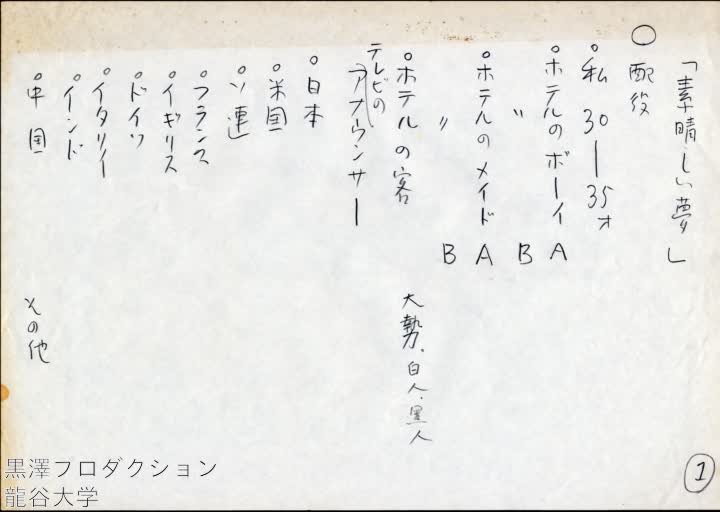 「素晴しい夢」
○配役
○私 30―35才
○ホテルのボーイ A
〃 B
○ホテルのメイド A
〃 B
○ホテルの客 大勢、白人、黒人
テレビの
アナウンサー
○日本
○米国
○ソ連
○フランス
○イギリス
○ドイツ
○イタリイ
○インド
○中国 その他
1
黒澤フロダクション
龍谷大学